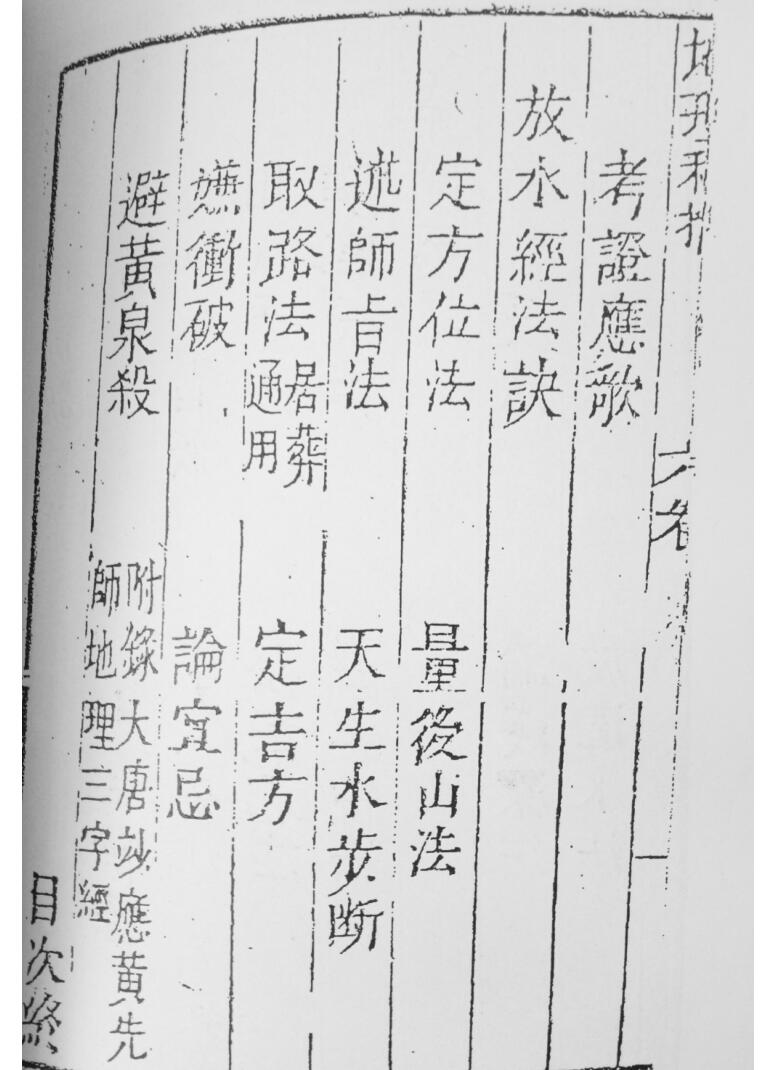 考證應歌
放水經法訣
定方位法　量後山法
述師旨法　天生水步断
取路法居葬通用　定吉方
嫌衝破　論宜忌
避黄泉殺　附錄大唐妙應黄先師地理三字經
目次終